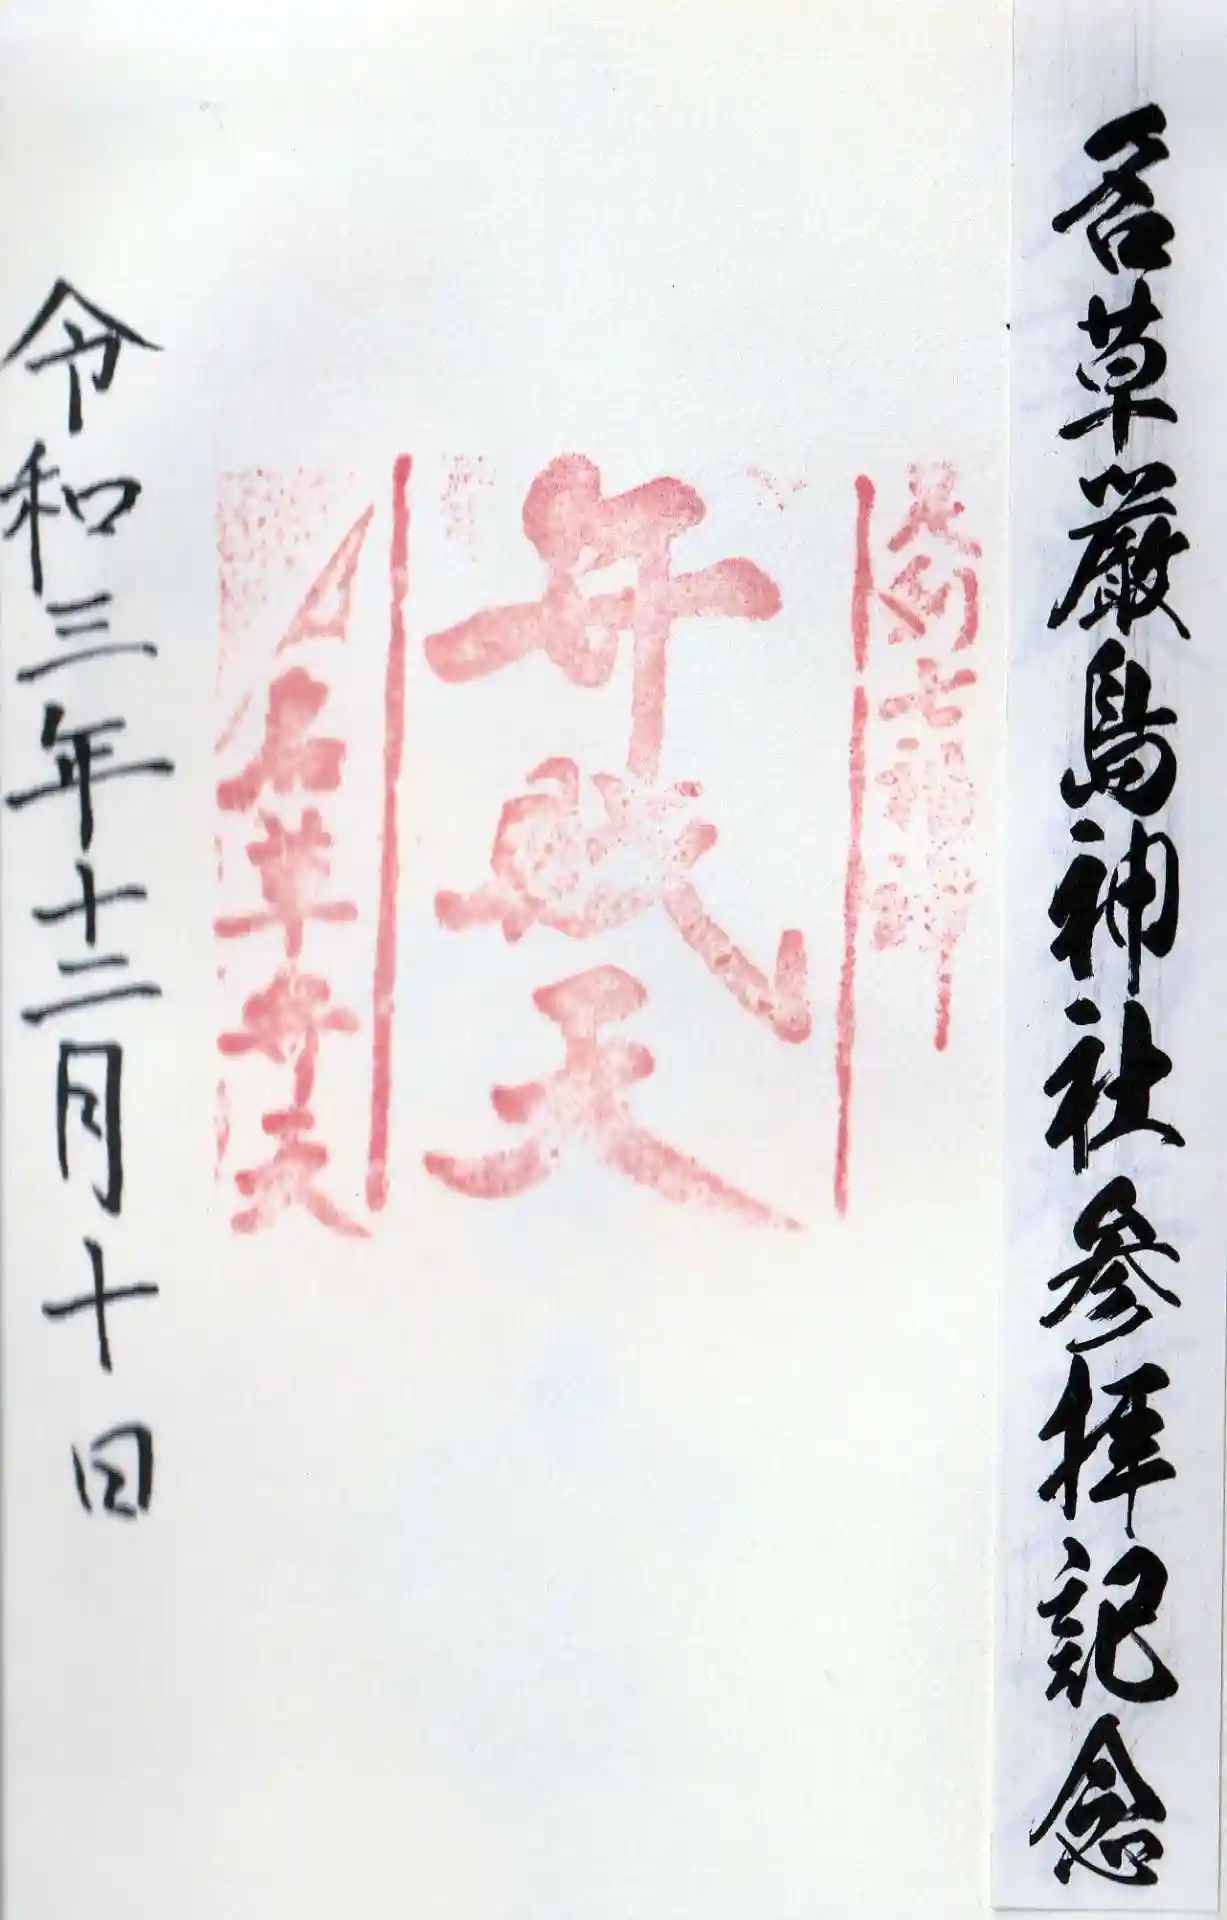 名草厳島神社参拝記念
足利七福神
弁戝天
名草弁天
令和三年十二月十日